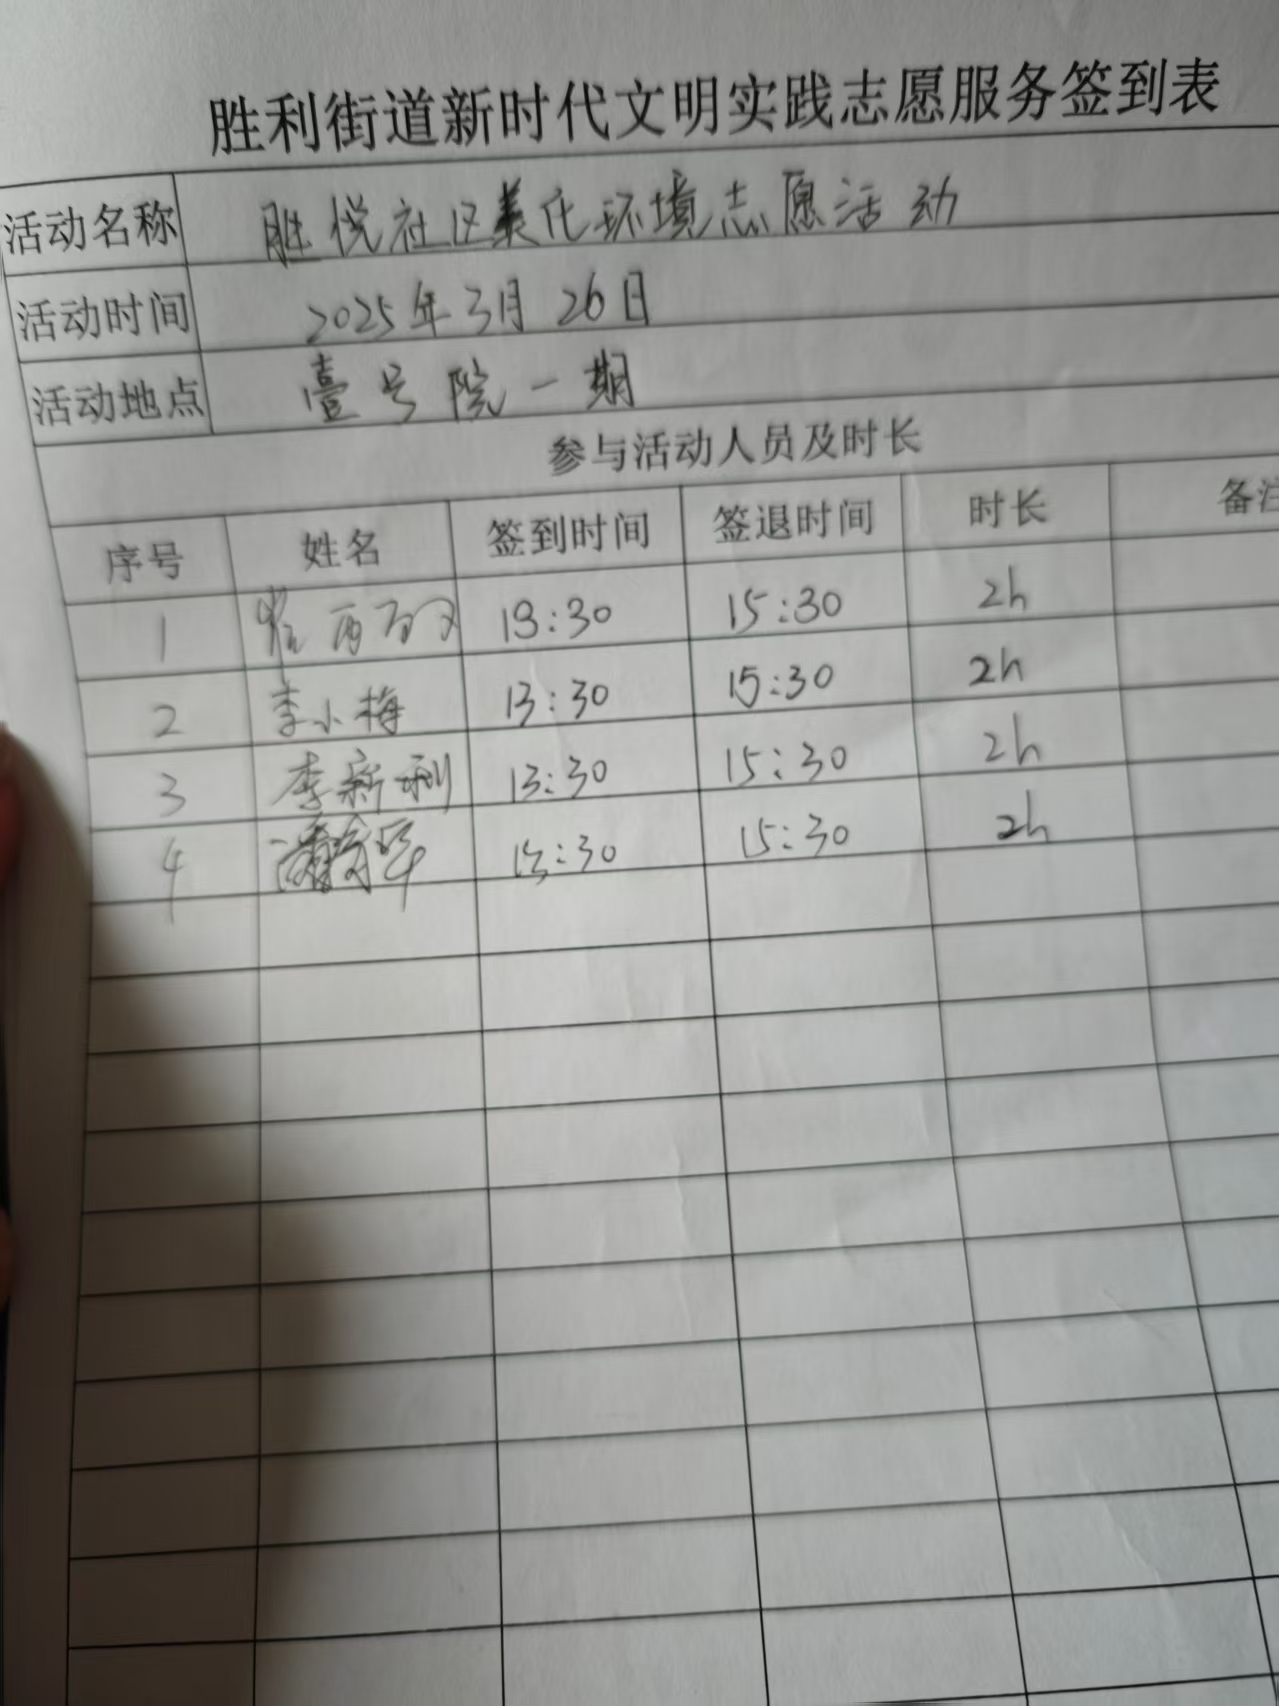 胜利街道新时代文明实践志愿服务签到表
活动名称 胜悦社区美化环境志愿活动
活动时间 2025年3月26日
活动地点 壹号院一期
参与活动人员及时长
序号 姓名 签到时间 签退时间 时长 备注
1 13:30 15:30 2h
2 李小梅 13:30 15:30 2h
3 李新利 13:30 15:30 2h
4 13:30 15:30 2h